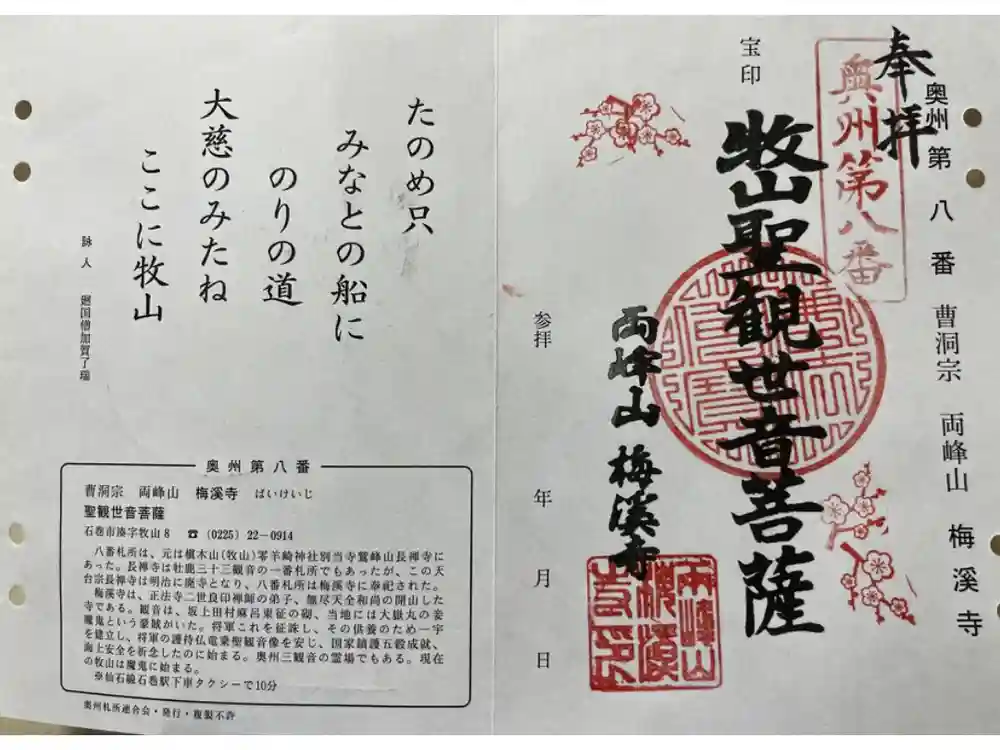 奉拝
奥州第八番
奥州第八番 曹洞宗 両峰山 梅溪寺
宝印
牧山聖観世音菩薩
両峰山 梅溪寺
参拝 年 月 日
たのめ只
みなとの船に
のりの道
大慈のみたね
ここに牧山
詠人 廻国僧加賀了瑞
奥州第八番
曹洞宗 両峰山 梅溪寺 ばいけいじ
聖観世音菩薩
石巻市湊字牧山8 ☎ (0225) 22-0914
八番札所は、元は槇木山(牧山)零羊崎神社別当寺鷲峰山長禅寺に
あった。長禅寺は牡鹿三十三観音の一番札所でもあったが、この天
台宗長禅寺は明治に廃寺となり、八番札所は梅溪寺に奉祀された。
梅溪寺は、正法寺二世良印禅師の弟子、無尽天全和尚の開山した
寺である。観音は、坂上田村麻呂東征の砌、当地には大嶽丸の妾
魔鬼という豪賊がいた。将軍これを征誅し、その供養のため一宇
を建立し、将軍の護持仏竜乗聖観音像を安じ、国家鎮護五穀成就、
海上安全を祈念したのに始まる。奥州三観音の霊場でもある。現在
の牧山は魔鬼に始まる。
※仙石線石巻駅下車タクシーで10分
奥州札所連合会・発行・複製不許